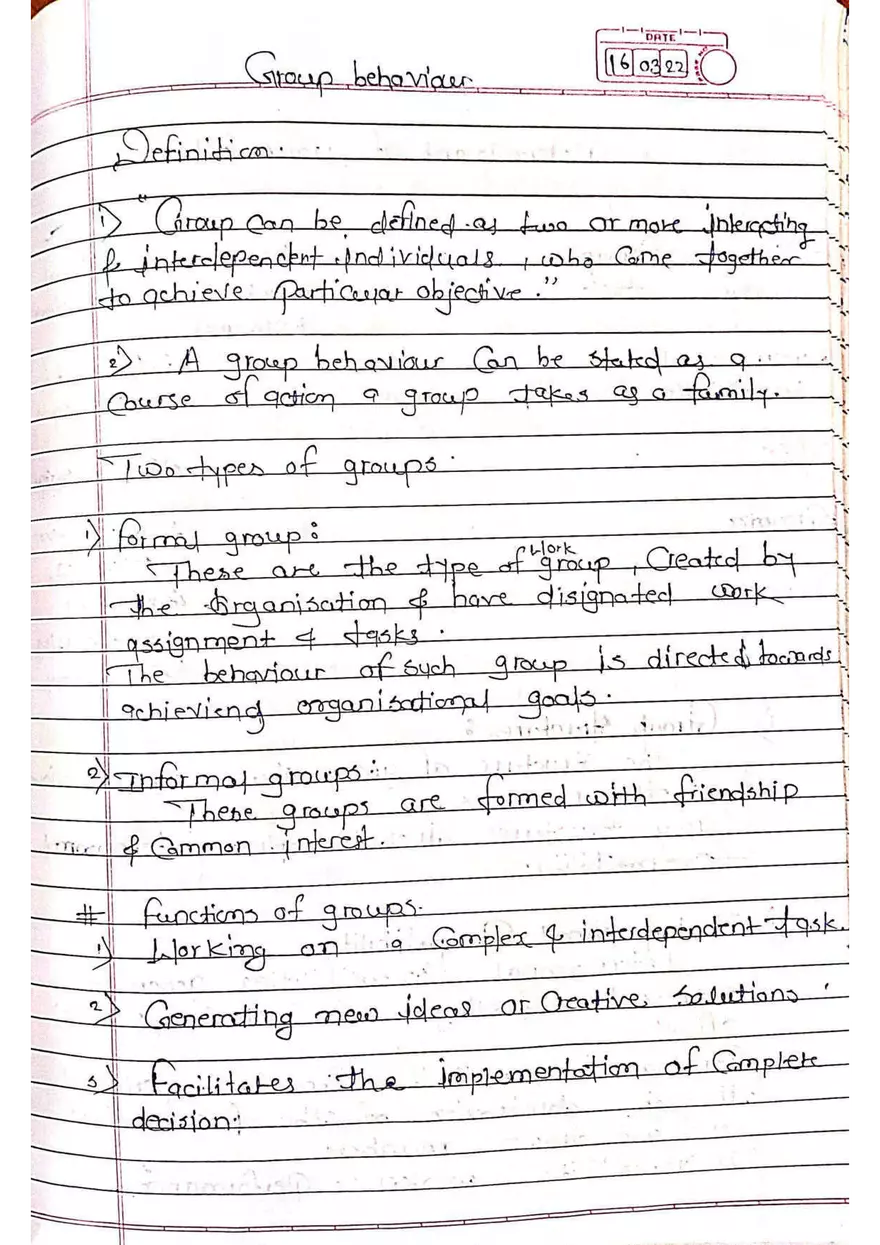 DATE
16 03 22
Group behaviour
Definition.
1) "Group can be defined as two or more interacting
& interdependent individuals, who came together
to achieve particular objective."
2) A group behaviour can be stated as a
course of action a group takes as a family.
Two types of groups.
1) formal group:
work
These are the type of group, Created by
the Organisation & have disignated work
assignment & tasks.
The behaviour of such group is directed towards
achieviend organisational goals.
2) Informal groups:
These groups are formed with friendship
& Common interest.
# functions of groups.
1) Working on a Complex & interdependent task.
2) Generating new ideas or Creative solutions.
3) Facilitates the implementation of Complete
decision: